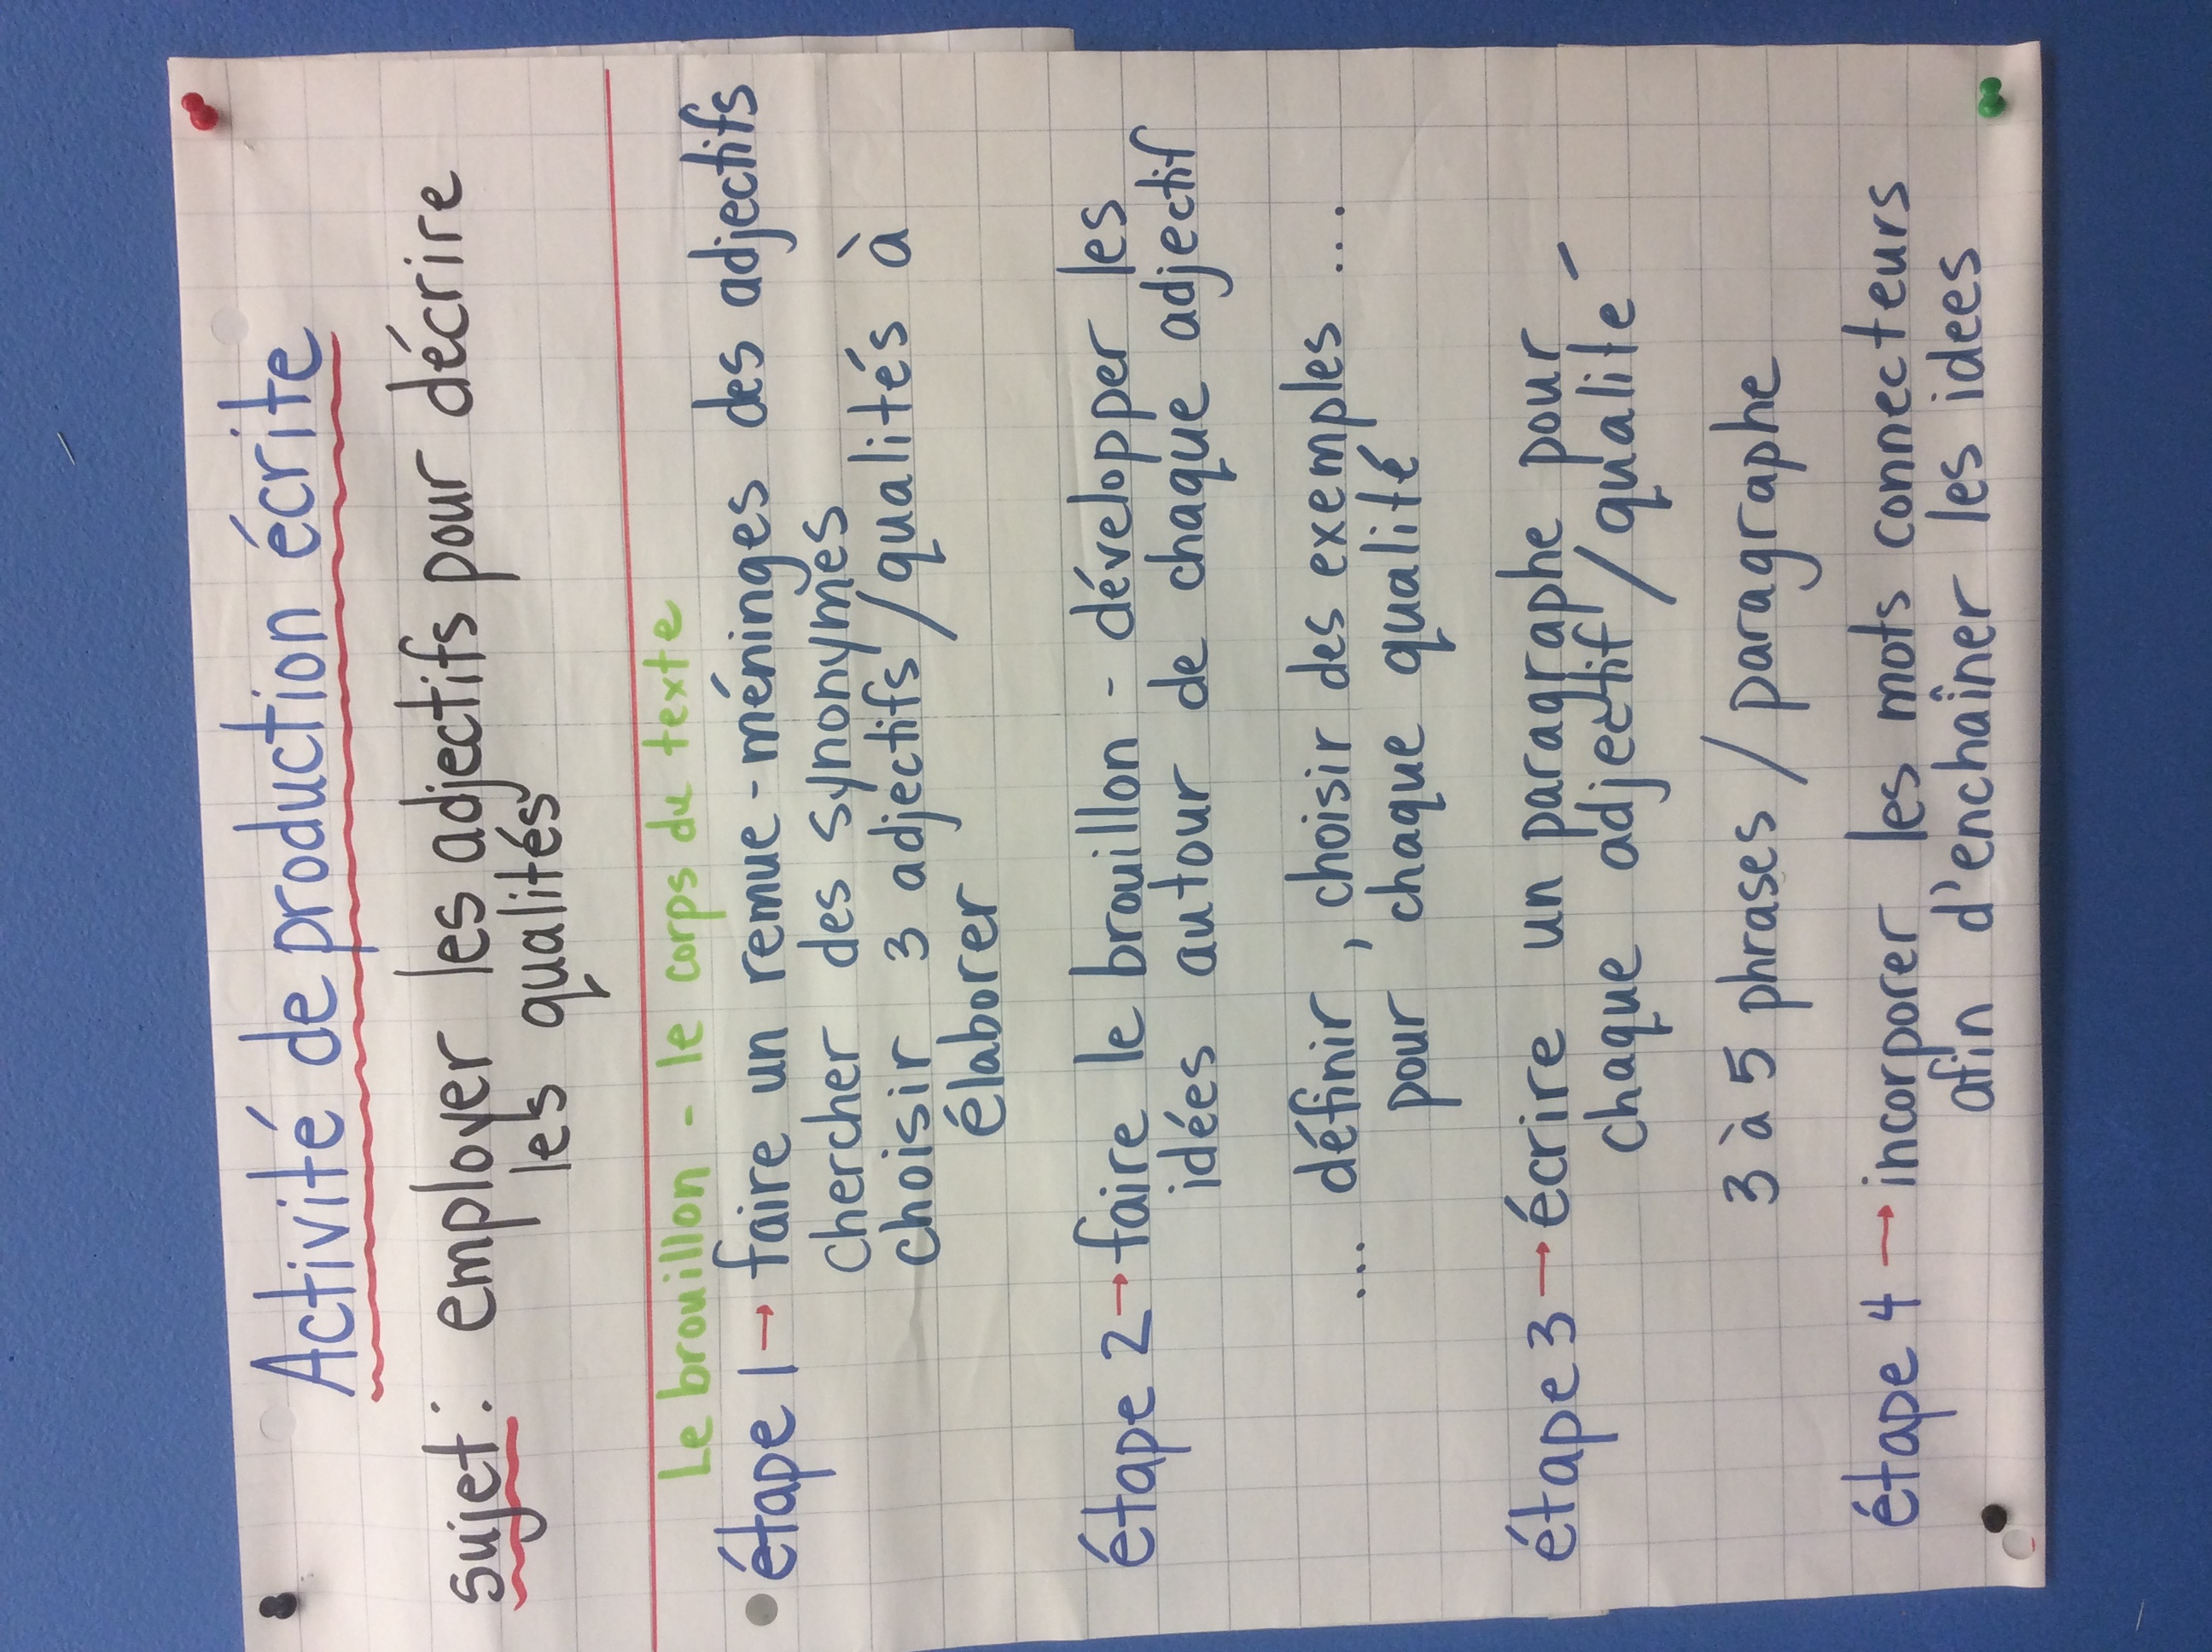 Activité de production écrite
sujet: employer les adjectifs pour décrire
les qualités
Le brouillon - le corps du texte
étape 1 → faire un remue-méninges des adjectifs
chercher des synonymes
choisir 3 adjectifs/qualités à
élaborer
étape 2 → faire le brouillon - développer les
idées autour de chaque adjectif
... définir, choisir des exemples ...
pour chaque qualité
étape 3 → écrire un paragraphe pour
chaque adjectif/qualité
3 à 5 phrases / paragraphe
étape 4 → incorporer les mots connecteurs
afin d'enchaîner les idees